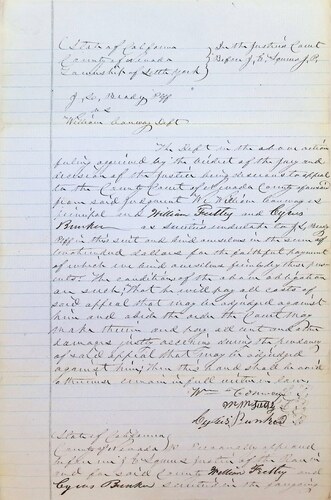 State of California
County of Nevada
Township of Little York
In the Justice's Court
Before J. E. J.P.
J. L. Brady Plff
vs
William Dept
The Deft in the above action
feeling agrieved by the verdict of the jury and
decision of the Justice being desirous to appeal
to the County Court of Nevada County
from said judgment We William as
principal and William Frelly and Cyrus
Bunker as sureties to J. L. Brady
Plff in this suit and bind ourselves in the sum of
one hundred dollars for the faithful payment
of which we bind ourselves firmly by these
The conditions of the above obligation
are such, That he will pay all costs of
said appeal that may be adjudged against
him and abide the order the Court may
make therein and pay all rent and the
damages justly during the pendency
of said appeal that may be adjudged
against him, then this bond shall be void
otherwise remain in full in law.
Wm
Cyrus Bunker
State of California
County of Nevada appeared
before me J. E. Justice of the Peace in
and for said County William Frelly and
Cyrus Bunker in the